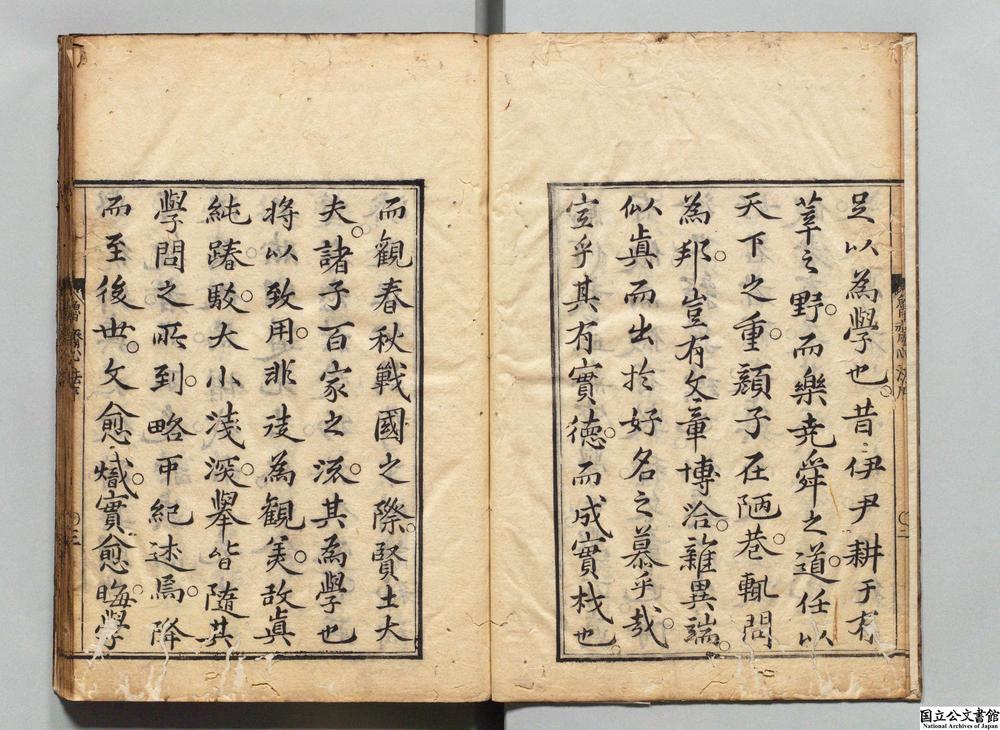 足以為學也。昔伊尹耕于有
莘之野。而樂堯舜之道。任以
天下之重。顏子在陋巷。輒問
為邦。豈有文章博洽。雜異端。
似眞而出於好名之慕乎哉。
宜乎其有實德。而成實材也。
而觀春秋戰國之際。賢士大
夫。諸子百家之流。其為學也
將以致用。非徒為觀美。故眞
純踳駁。大小淺深。擧皆隨其
學問之所到。略可紀述焉。降
而至後世。文愈熾。實愈晦。學
魯齋心法序
〇二
〇三
国立公文書館
National Archives of Japan